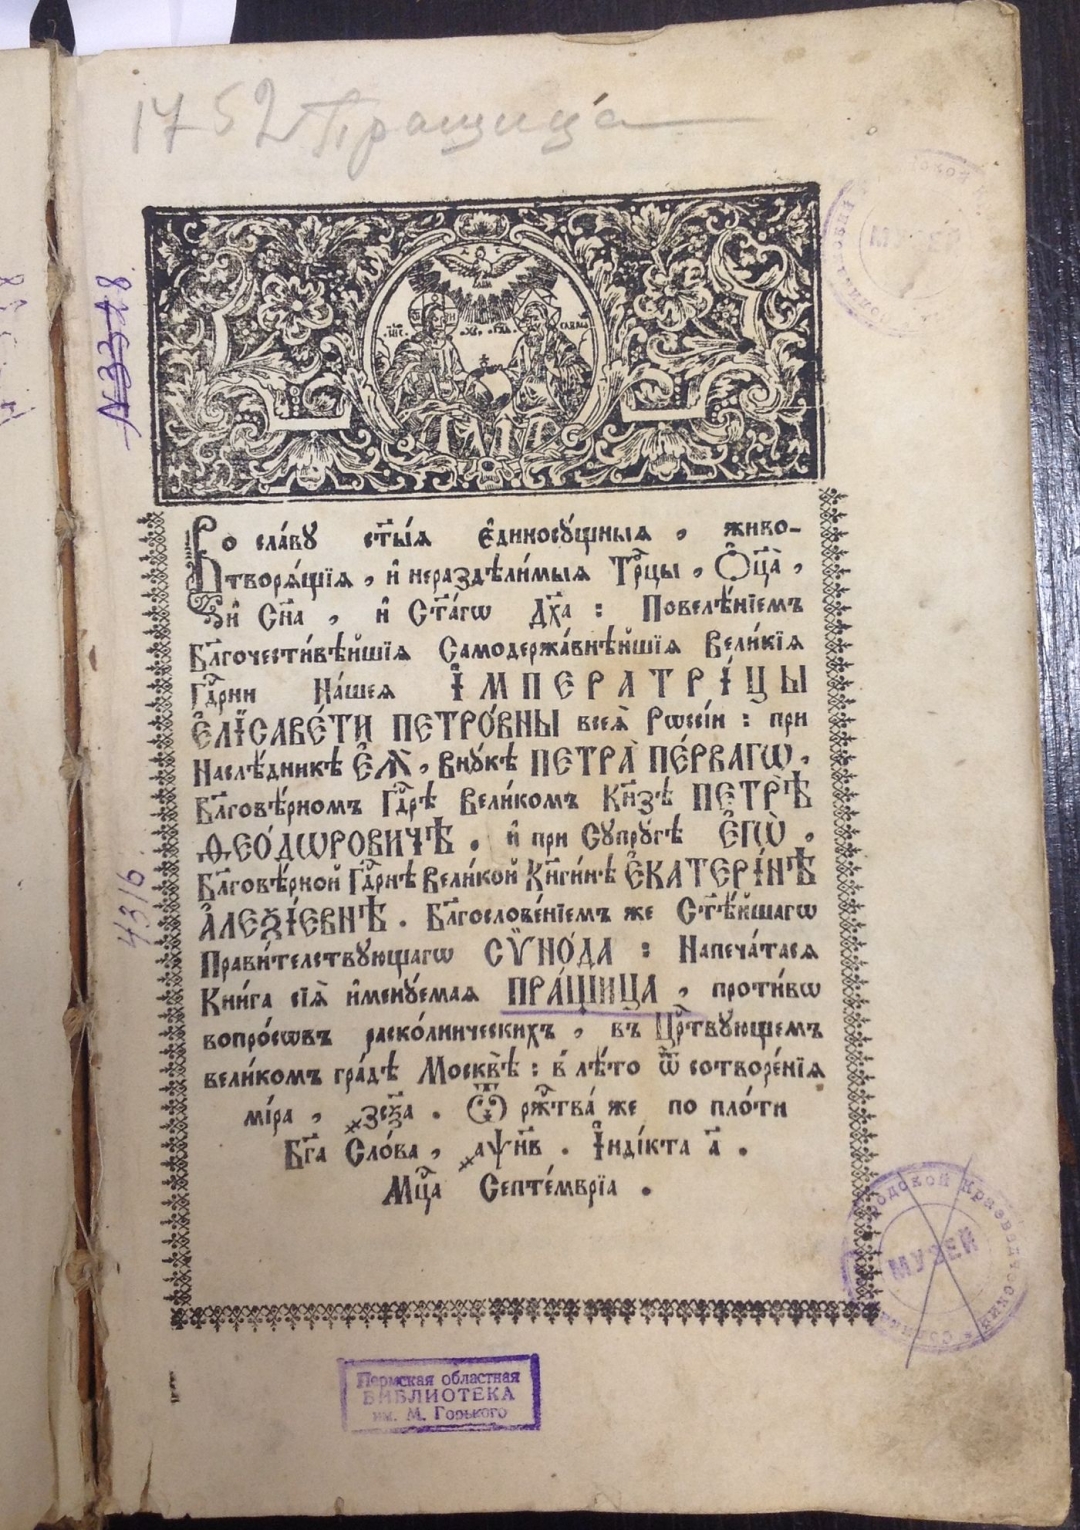 1752 Пращица
МУЗЕЙ
№3348
ІИС ХС БГЪ САВАѠѲ
Во сла́ву ст҃ы́ѧ є҆диносꙋ́щныѧ , живо-
творѧ́щїѧ , и҆ нераздѣли́мыѧ Трⷪ҇цы , Ѻ҆ц҃а̀ ,
и҆ Сн҃а , и҆ Ст҃а́гѡ Дх҃а : Повелѣ́нїемъ
Бл҃гочести́вѣйшїѧ Самодержа́внѣйшїѧ Вели́кїѧ
Гдⷭ҇рни На́шеѧ І҆МПЕРАТРІ́ЦЫ
Є҆ЛІСАВЕ́ТИ ПЕТРО́ВНЫ всеѧ̀ Рѡссі́и : при
Наслѣ́дникѣ Є҆Ѧ̀ , внꙋ́кѣ ПЕТРА̀ ПЕ́РВАГѠ ,
Бл҃говѣ́рномъ Гдⷭ҇рѣ Вели́комъ Кн҃зѣ ПЕТРѢ̀
Ѳ҆ЕО́ДѠРОВИЧѢ . и҆ при Сꙋпрꙋ́гѣ Є҆ГѠ̀ ,
Бл҃говѣ́рной Гдⷭ҇рнѣ Вели́кой Кн҃ги́нѣ Є҆КАТЕРІ́НѢ
А҆ЛЕѮІ́ЕВНѢ . Бл҃гослове́нїемъ же Ст҃ѣ́йшагѡ
Прави́телствꙋющагѡ СѴНО́ДА : Напеча́тасѧ
Кни́га сїѧ̀ и҆менꙋ́емаѧ ПРА́ЩИЦА , проти́вѡ
вопро́сѡвъ раско́лническихъ , въ Црⷭ҇твꙋющемъ
вели́комъ гра́дѣ Москвѣ̀ : в лѣ́то ѿ сотворе́нїѧ
мі́ра , ҂зс҃ѯа . Ѿ рж҃тва́ же по пло́ти
Бг҃а Сло́ва , ҂аѱн҃в . І҆нді́кта а҃ .
Мцⷭ҇а Септе́мврїа .
4316
Городской Краеведческий
МУЗЕЙ
Пермская областная
БИБЛИОТЕКА
им. М. Горького